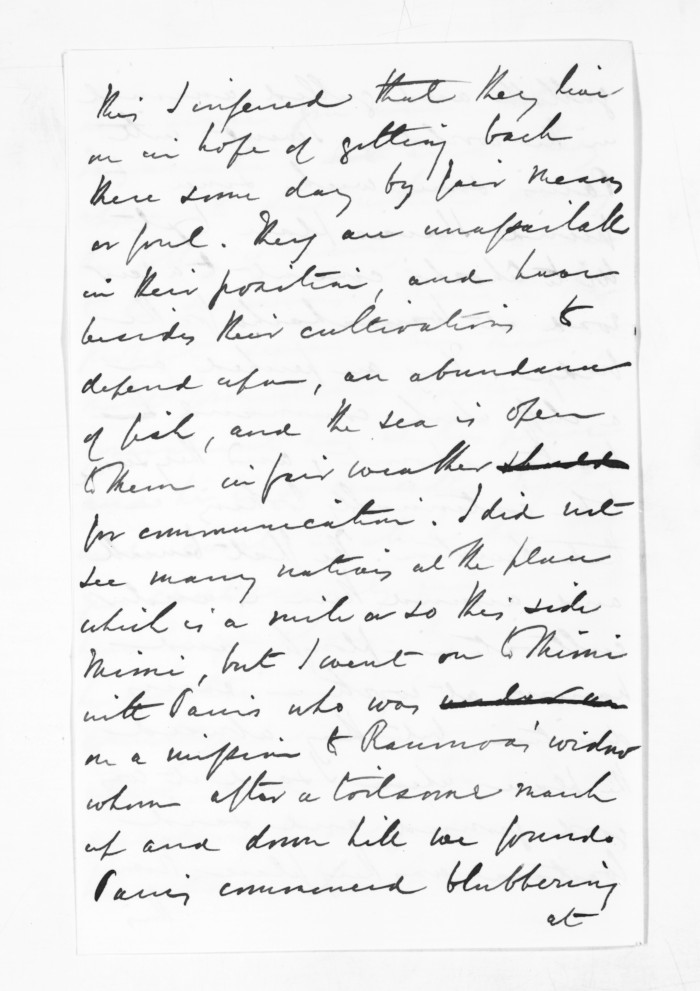 this I inferred that they live
on in hope of getting back
there some day by fair means
or foul. They are unassailable
in their position, and have
besides their cultivations to
depend upon, an abundance
of fish, and the sea is open
to them in fair weather
for communication. I did not
see many natives at the place
which is a mile or so this side
Mimi, but I went on to Mimi
with Paris who was under an
on a mission to widow
whom after a toilsome march
up and down hill we found
Paris commenced blubbering
at